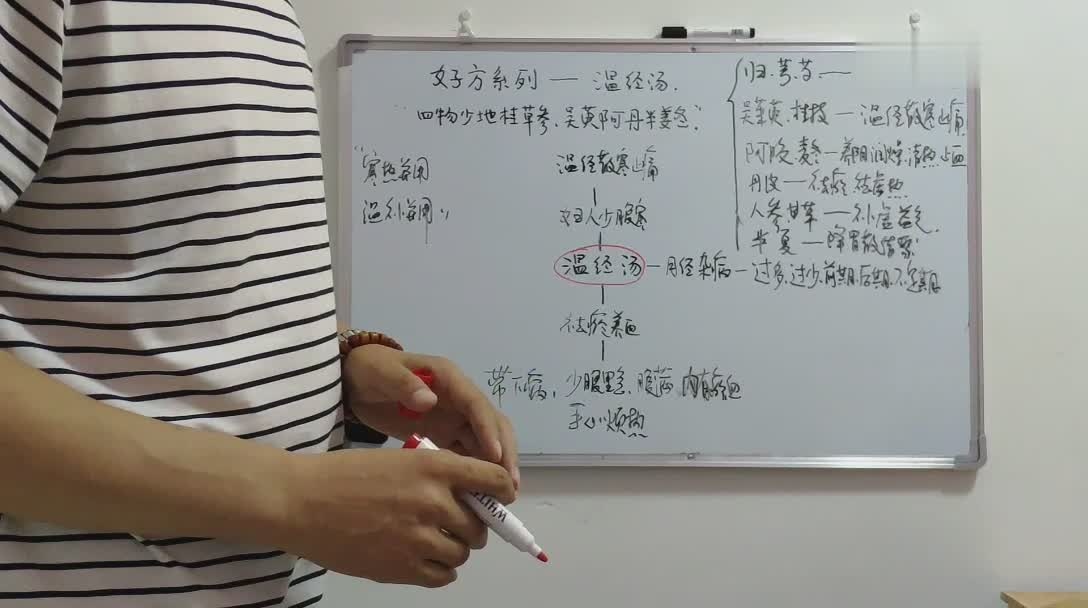 好方系列 — 温经汤.
"四物少地桂草参、吴萸阿丹半姜冬"
"寒热并用
温补并用"
温经散寒止痛
妇人少腹寒
温经汤 — 月经杂病 — 过多.过少.前期.后期.不定期
祛瘀养血
带下病, 少腹里急、腹满 内有瘀血
手心烦热
归.芎.芍. —
吴茱萸.桂枝 — 温经散寒止痛
阿胶.麦冬 — 养阴润燥.清热止血
丹皮 — 祛瘀 祛虚热
人参.甘草 — 补虚益气.
半夏 — 降胃散结
WHIT